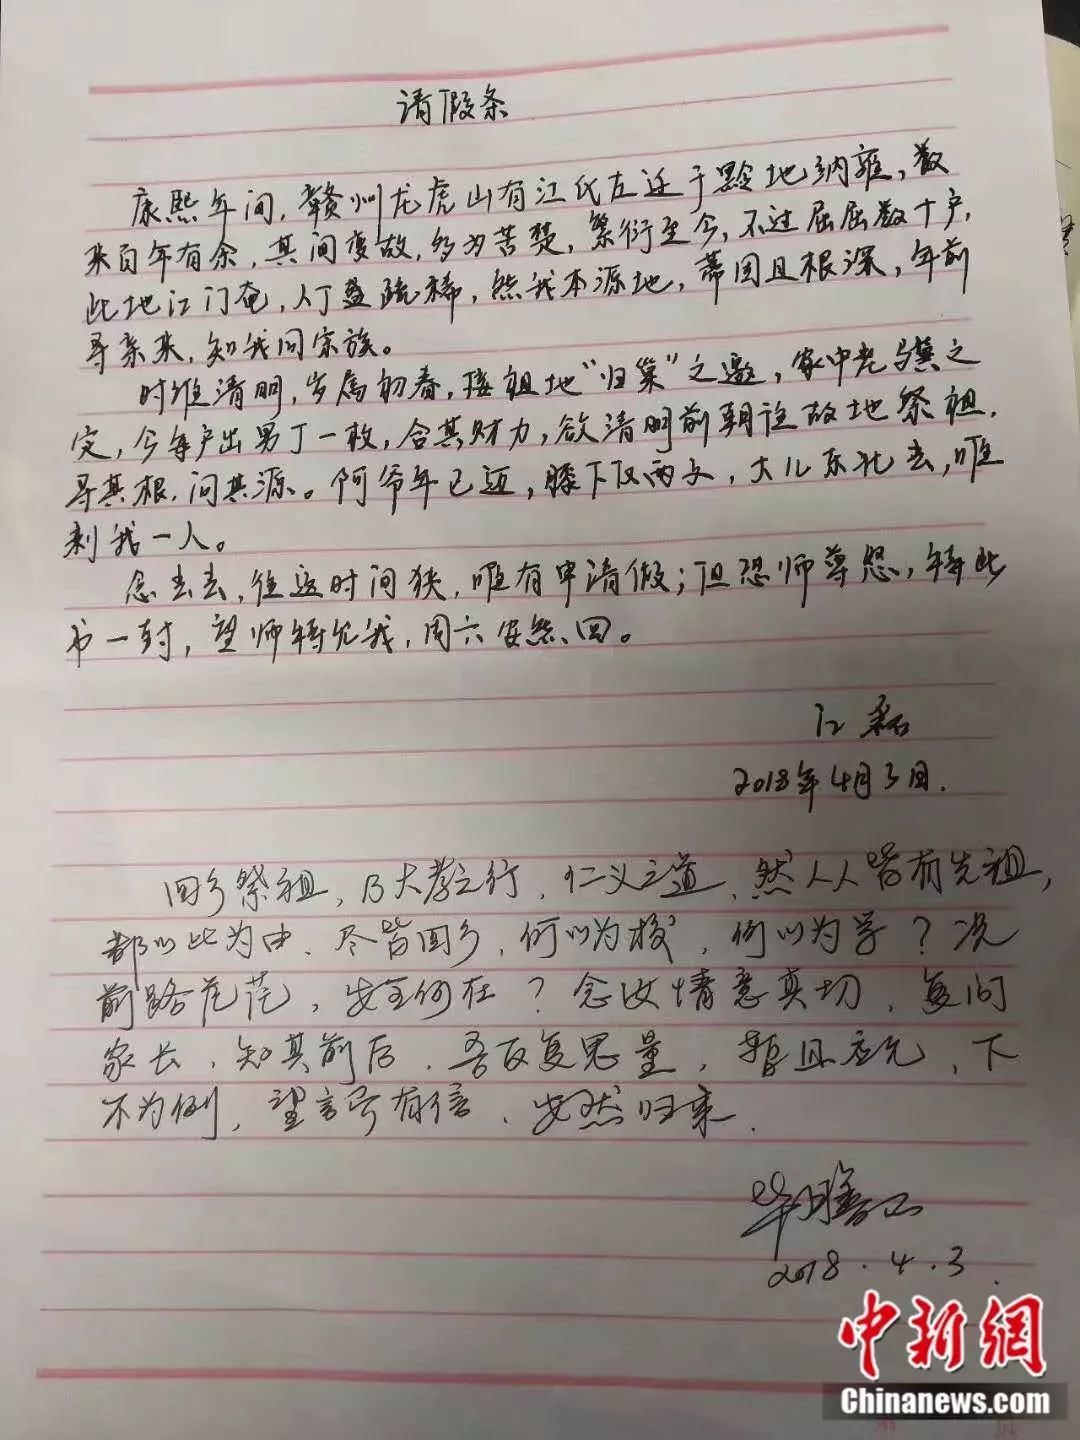 请假条
康熙年间，赣州龙虎山有江氏左迁于黔地纳雍，数
来百年有余，其间变故，多为苦楚，繁衍至今，不过屈屈数十户，
此地江门奄，人丁盈疏稀，然我本源地，蒂固且根深，年前
寻亲来，知我同宗族。
时维清明，岁属初春，接祖地“归巢”之邀，家中老
定，今每户出男丁一枚，合其财力，欲清明前朝往故地祭祖，
寻其根，问其源。阿爷年已迈，膝下仅两子，大儿东北去，唯
剩我一人。
念去去，往返时间狭，唯有申请假；但恐师尊怒，特此
书一封，望师特允我，周六安然回。
江磊
2018年4月3日.
回乡祭祖，乃大孝之行，仁义之道，然人人皆有先祖，
都以此为由，尽皆回乡，何以为校，何以为学？况
前路茫茫，安全何在？念汝情意真切，复问
家长，知其前后，吾反复思量，暂且应允，下
不为例，望言而有信，安然归来.
2018.4.3.
中新网
Chinanews.com